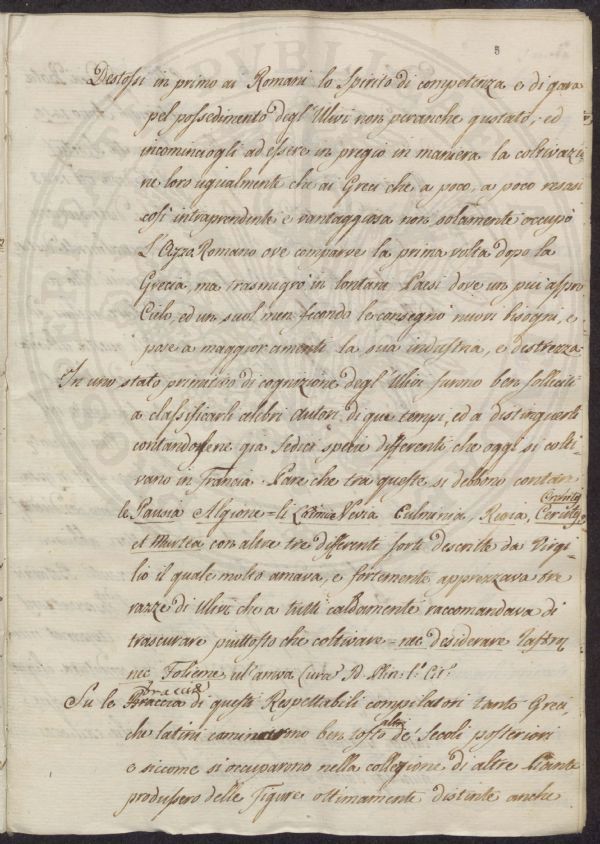 5
Destossi in primo ai Romani lo Spirito di competenza e di gara
pel possedimento degl' Ulivi non peranche gustato; ed
incominciogli ad essere in pregio in maniera la coltivazio
ne loro ugualmente che ai Greci che a poco, a poco resasi
così intraprendente e vantaggiosa non solamente occupò
L'Agro Romano ove comparve la prima volta dopo la
Grecia, ma trasmigrò in lontani Paesi dove un più aspro
Cielo, ed un suol men fecondo le consegnò nuovi bisogni, e
pose a maggior cimenti la sua industria, e destrezza
In uno stato primitivo di cognizione degl' Ulivi furono ben solleciti
a classificarli celebri autori di que tempi, ed a distinguerli
contandosene già sedici specie differenti che oggi si colti-
vano in Francia. Pare che tra queste si debbono contare
le Pausia Algione = li Veria Culminia, Regia,
et Murtea con altre tre differenti sorti descritte da Virgi-
lio il quale molto amava, e fortemente apprezzava tre
razze di Ulivi che a tutti caldamente raccomandava di
trascurare piuttosto che coltivare = nec desiderare
nec
braccia
Su le Braccia di questi Rispettabili compilatori tanto Greci,
che latini caminarono ben tosto altri de' Secoli posteriori
e siccome si occuparono nella collegione di altre Piante
produssero delle Figure ottimamente distinte anche